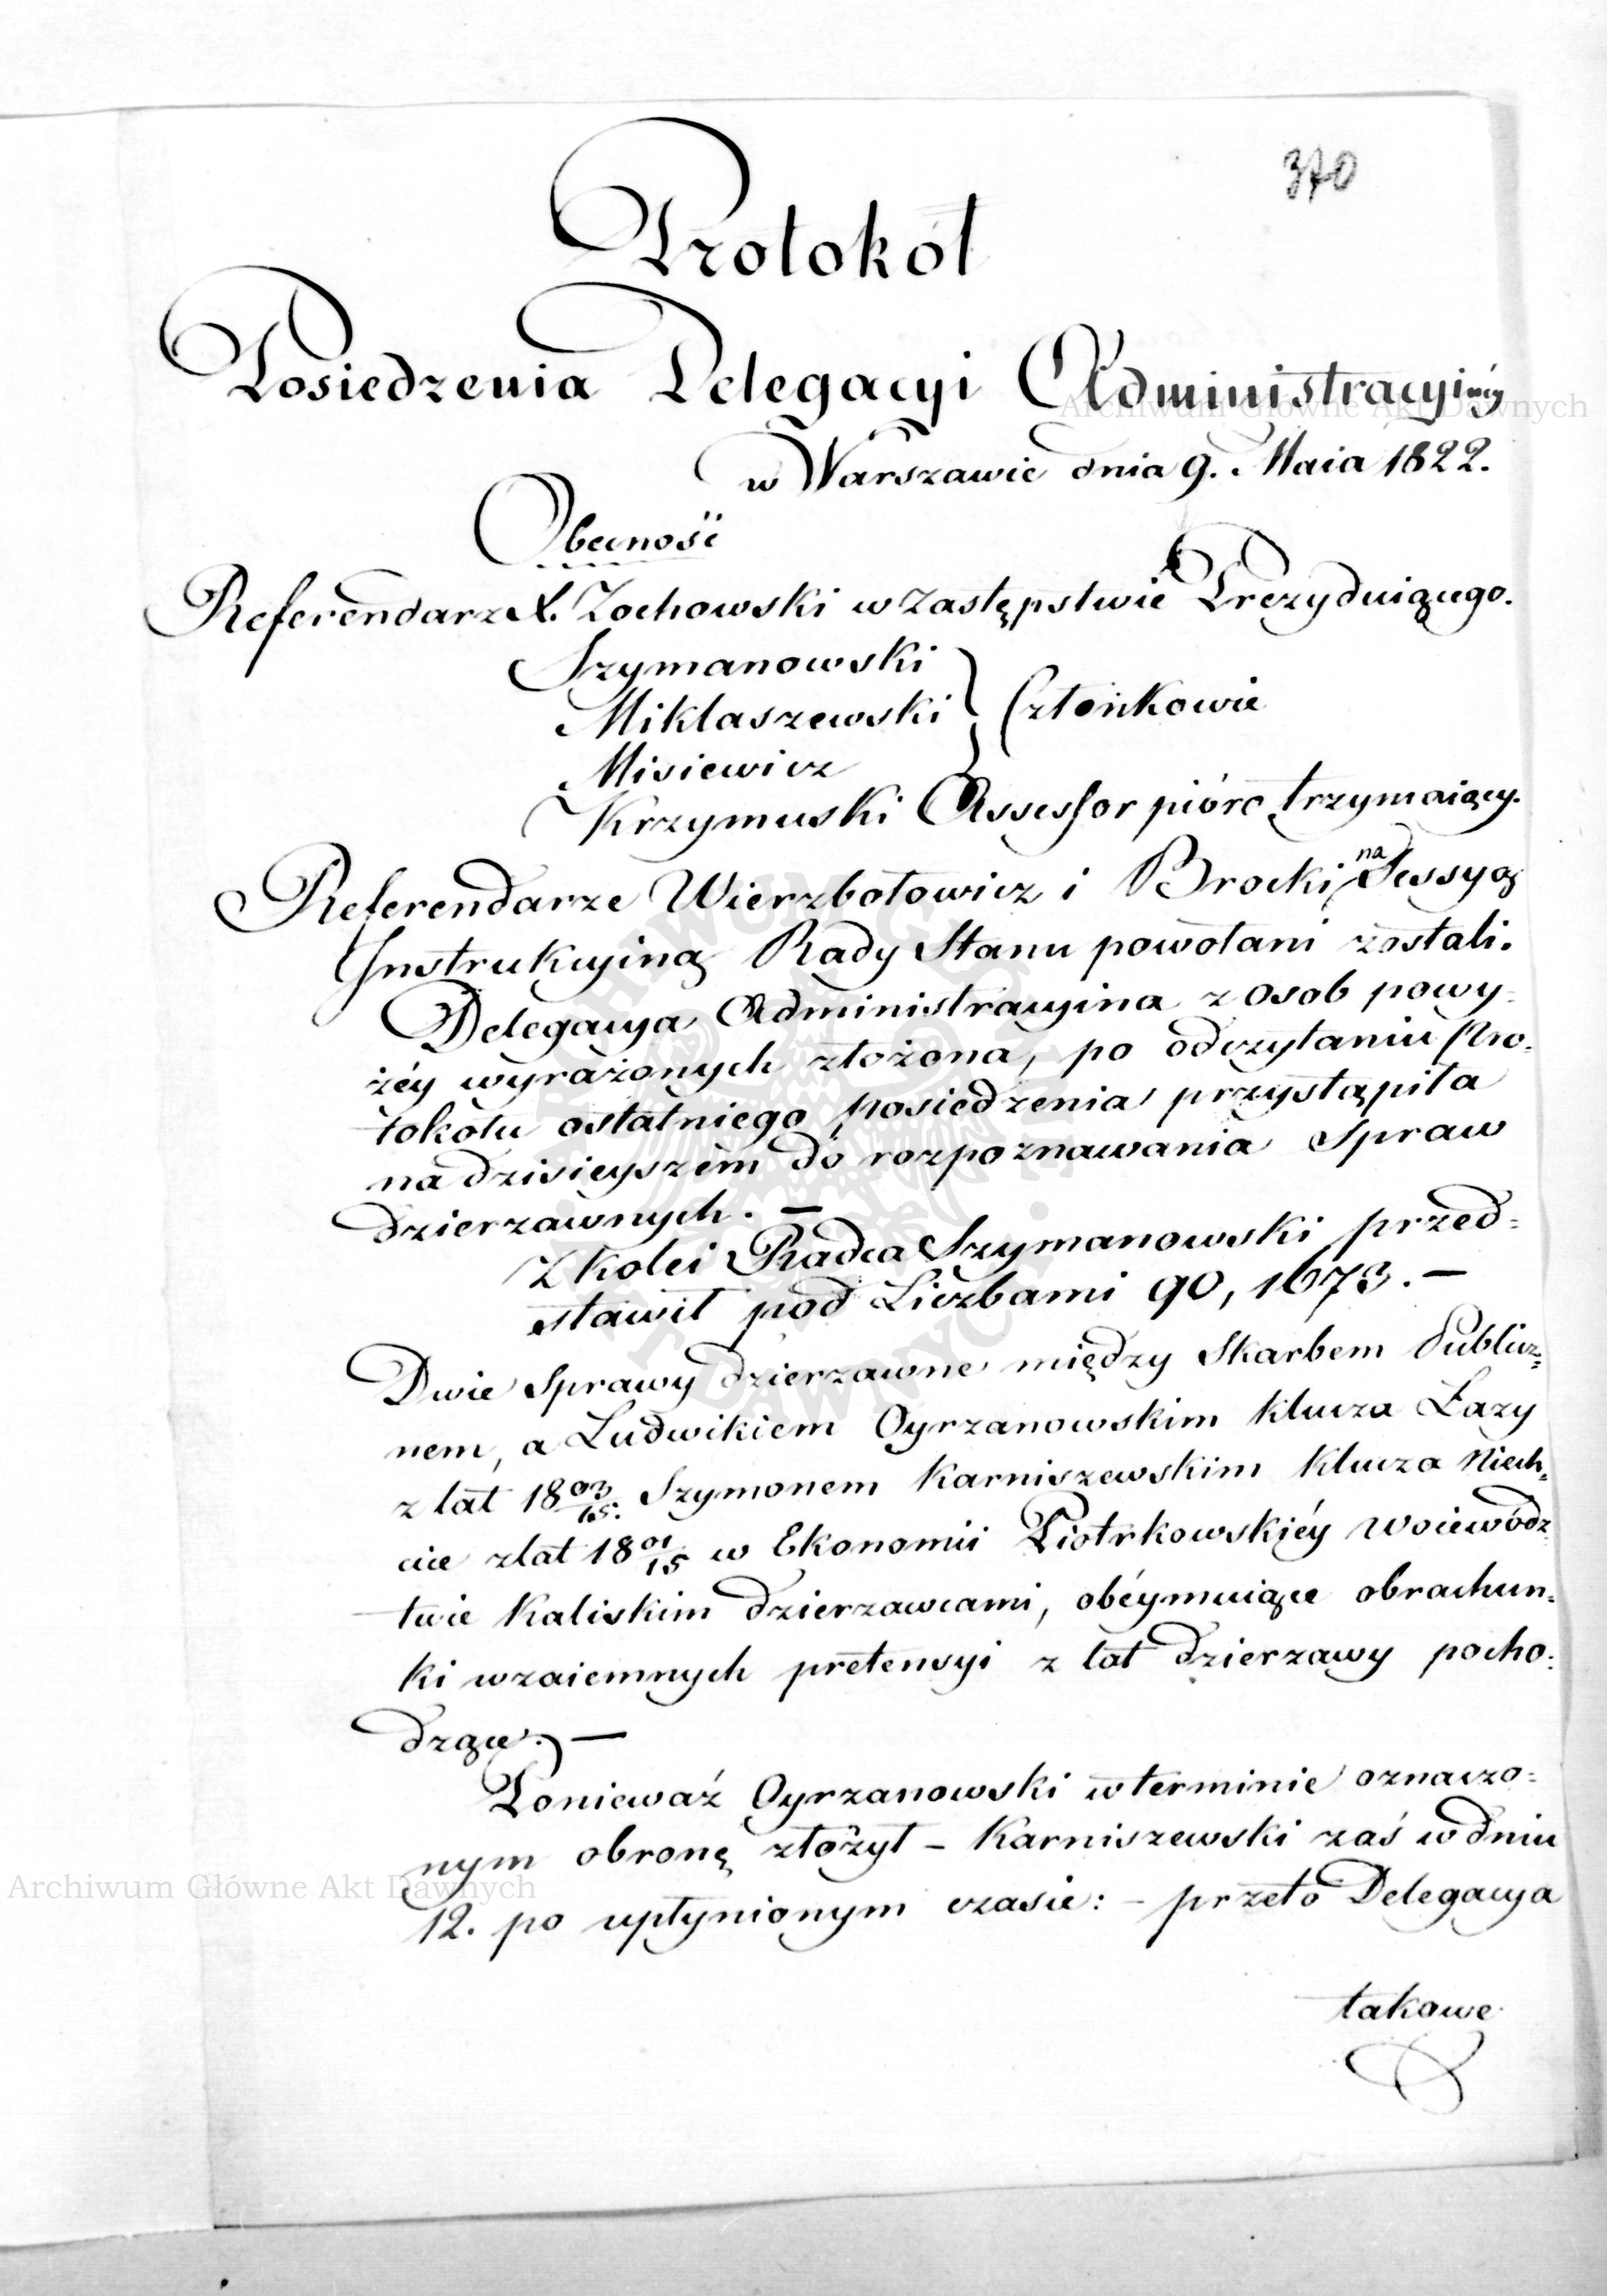 370
Protokół
Posiedzenia Delegacyi Administracyinéy
w Warszawie dnia 9. Maia 1822.
Obecność
Referendarz X. Zochowski w zastępstwie Prezyduiącego.
Szymanowski
Miklaszewski } Członkowie
Misiewicz
Krzymuski Assessor pióro trzymaiący.
Referendarze Wierzbołowicz i Brocki na Sessyą
Instrukcyiną Rady Stanu powołani zostali.
Delegacya Administracyina z osob powy-
żéy wyrażonych złożona, po odczytaniu Pro-
tokołu ostatniego posiedzenia przystąpiła
na dzisieyszem do rozpoznawania Spraw
dzierzawnych. —
Z kolei Radca Szymanowski przed-
stawił pod Liczbami 90, 1673. —
Dwie Sprawy dzierzawne między Skarbem Publicz-
nem, a Ludwikiem Oyrzanowskim klucza Łazy
z lat 18 03/15. Szymonem Karniszewskim klucza Niech-
cice z lat 18 01/15 w Ekonomii Piotrkowskiéy Woiewódz-
twie Kaliskim dzierzawcami, obéymuiące obrachun-
ki wzaiemnych pretensyi z lat dzierzawy pocho-
dzące. —
Ponieważ Oyrzanowski w terminie oznaczo-
nym obronę złożył – Karniszewski zaś w dniu
12. po upłynionym czasie: – przeto Delegacya
takowe
Archiwum Główne Akt Dawnych
Archiwum Główne Akt Dawnych